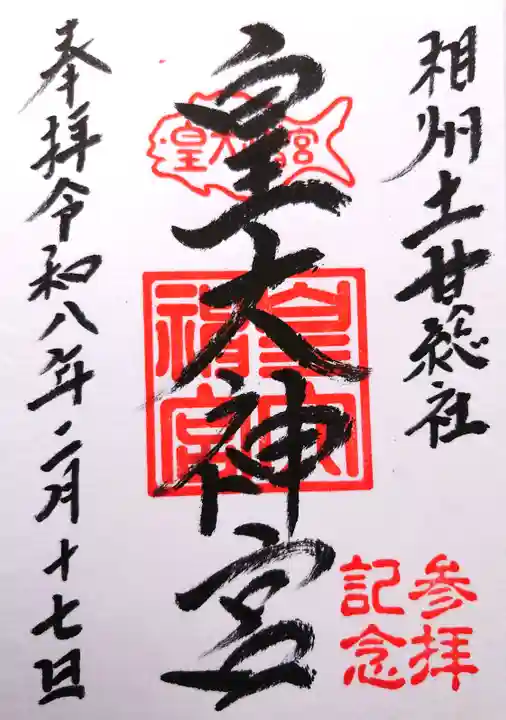 相州土甘総社
皇大神宮
奉拝令和八年二月十七日
皇大神宮
参拝
記念